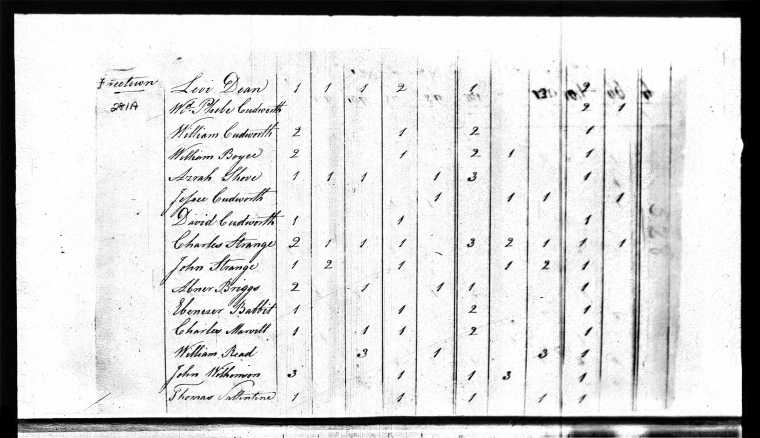 Freetown
281A
Levi Dean 1 1 1 2 1 2
Wd. Phebe Cudworth 2 1
William Cudworth 2 1 2 1
William Boyce 2 1 2 1 1
Azrah Shove 1 1 1 1 3 1
Jesse Cudworth 1 1 1 1
David Cudworth 1 1 1
Charles Strange 2 1 1 1 3 2 1 1 1
John Strange 1 2 1 1 2 1
Abner Briggs 2 1 1 1 1
Ebenezer Babbit 1 1 2 1
Charles Marvell 1 1 1 2 1
William Read 3 1 3 1
John Wilkinson 3 1 1 3 1
Thomas 1 1 1 1 1